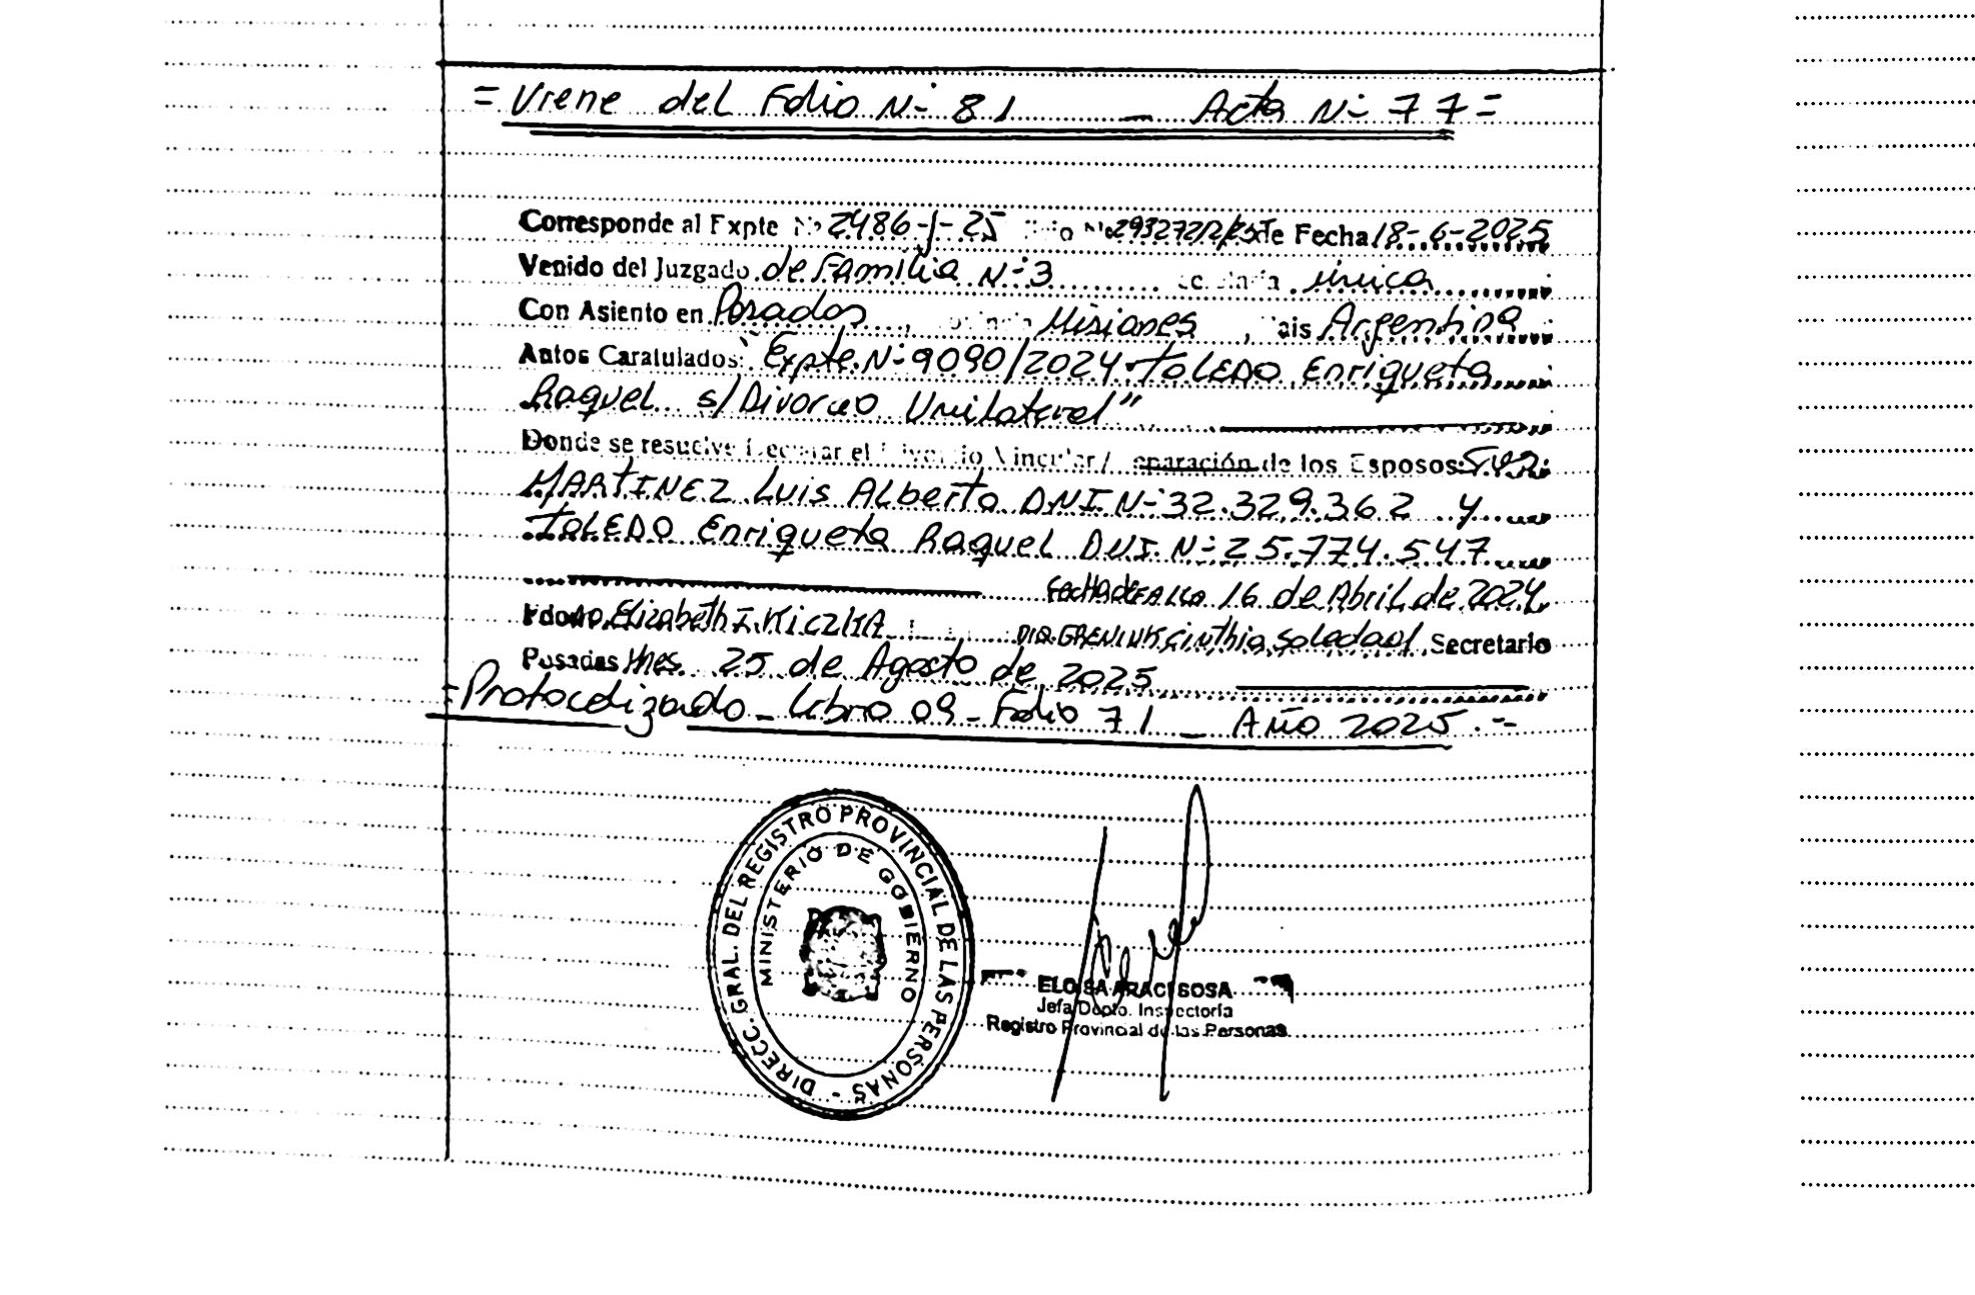 = Viene del Folio N- 81 _ Acta N- 77 =
Corresponde al Expte Nº 2486-J-25 de Fecha 18-6-2025
Venido del Juzgado de Familia N-3 única
Con Asiento en Posadas, Misiones, Pais Argentina
Autos Caratulados: "Expte. N-9090/2024 TOLEDO Enriqueta
Raquel s/Divorcio Unilateral"
Donde se resuelve Decretar el Divorcio Vincular/ Separación de los Esposos:
MARTINEZ Luis Alberto DNI. N-32.329.362 y
TOLEDO Enriqueta Raquel DNI. N-25.774.547
FECHA DE FALLO 16 de Abril de 2024
Fdo. Elizabeth I. KICZKA Cinthia Soledad, Secretario
Posadas Mnes. 25 de Agosto de 2025
=Protocolizado_ Libro 09_ Folio 71 _ Año 2025.=
DIRECC. GRAL. DEL REGISTRO PROVINCIAL DE LAS PERSONAS -
MINISTERIO DE GOBIERNO
ELOISA ARACI SOSA
Jefa Dpto. Inspectoría
Registro Provincial de las Personas